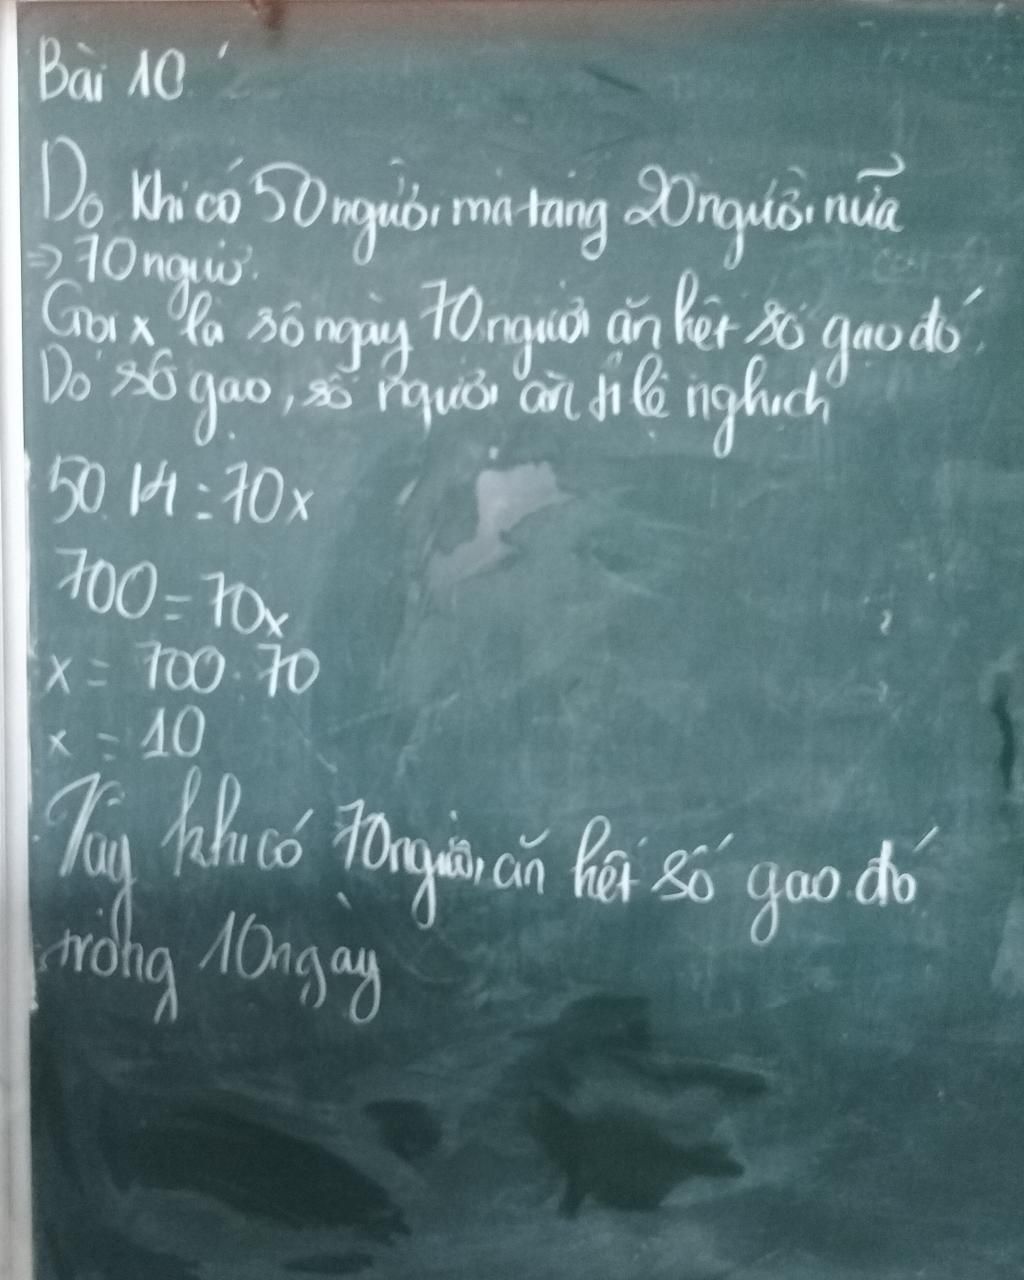 Bài 10
Do khi có 50 người mà tăng 20 người nữa
=> 70 người.
Gọi x là số ngày 70 người ăn hết số gạo đó.
Do số gạo, số người ăn tỉ lệ nghịch
50.14 = 70x
700 = 70x
x = 700:70
x = 10
Vậy khi có 70 người ăn hết số gạo đó
trong 10 ngày